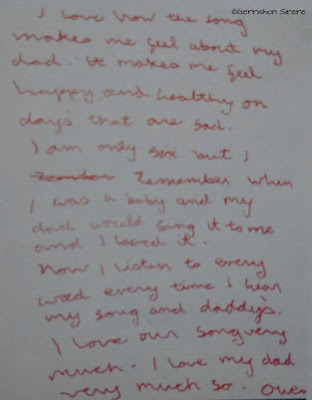 ©Gerrishon Sirere
I love how the song
makes me feel about my
dad. It makes me feel
happy and healthy on
days that are sad.
I am only six but I
remember when
I was a baby and my
dad would sing it to me
and I loved it.
Now I listen to every
word every time I hear
my song and daddy's.
I love our song very
much. I love my dad
very much so. Owen